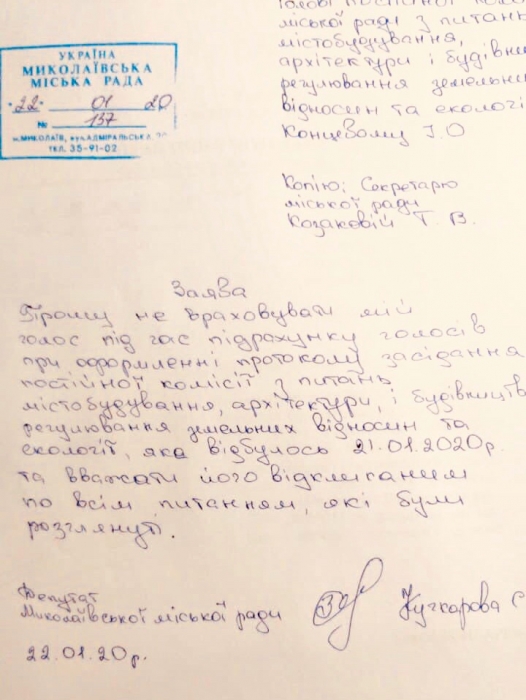 Голові постійної
міської ради з питань
містобудування,
архітектури і
регулювання
відносин та екологі
Концевому І.О
УКРАЇНА
МИКОЛАЇВСЬКА
МІСЬКА РАДА
"22" 01 20
№ 137
м.МИКОЛАЇВ, вул.АДМІРАЛЬСЬКА,
тел. 35-91-02
Копію: Секретарю
міської ради
Козаковій Т В.
Заява
Прошу не враховувати мій
голос під час підрахунку голосів
при оформленні протокому засідання
постійної комісії з питань
містобудування, архітектури, і будівництв
регулювання земельних відносин та
екології, яка відбулось 21.01.2020р.
та вважати його відкликаним
по всім питанням, які були
розглянуті.
Депутат
Миколаївської міської ради
Кучкарова С
22.01.20р.